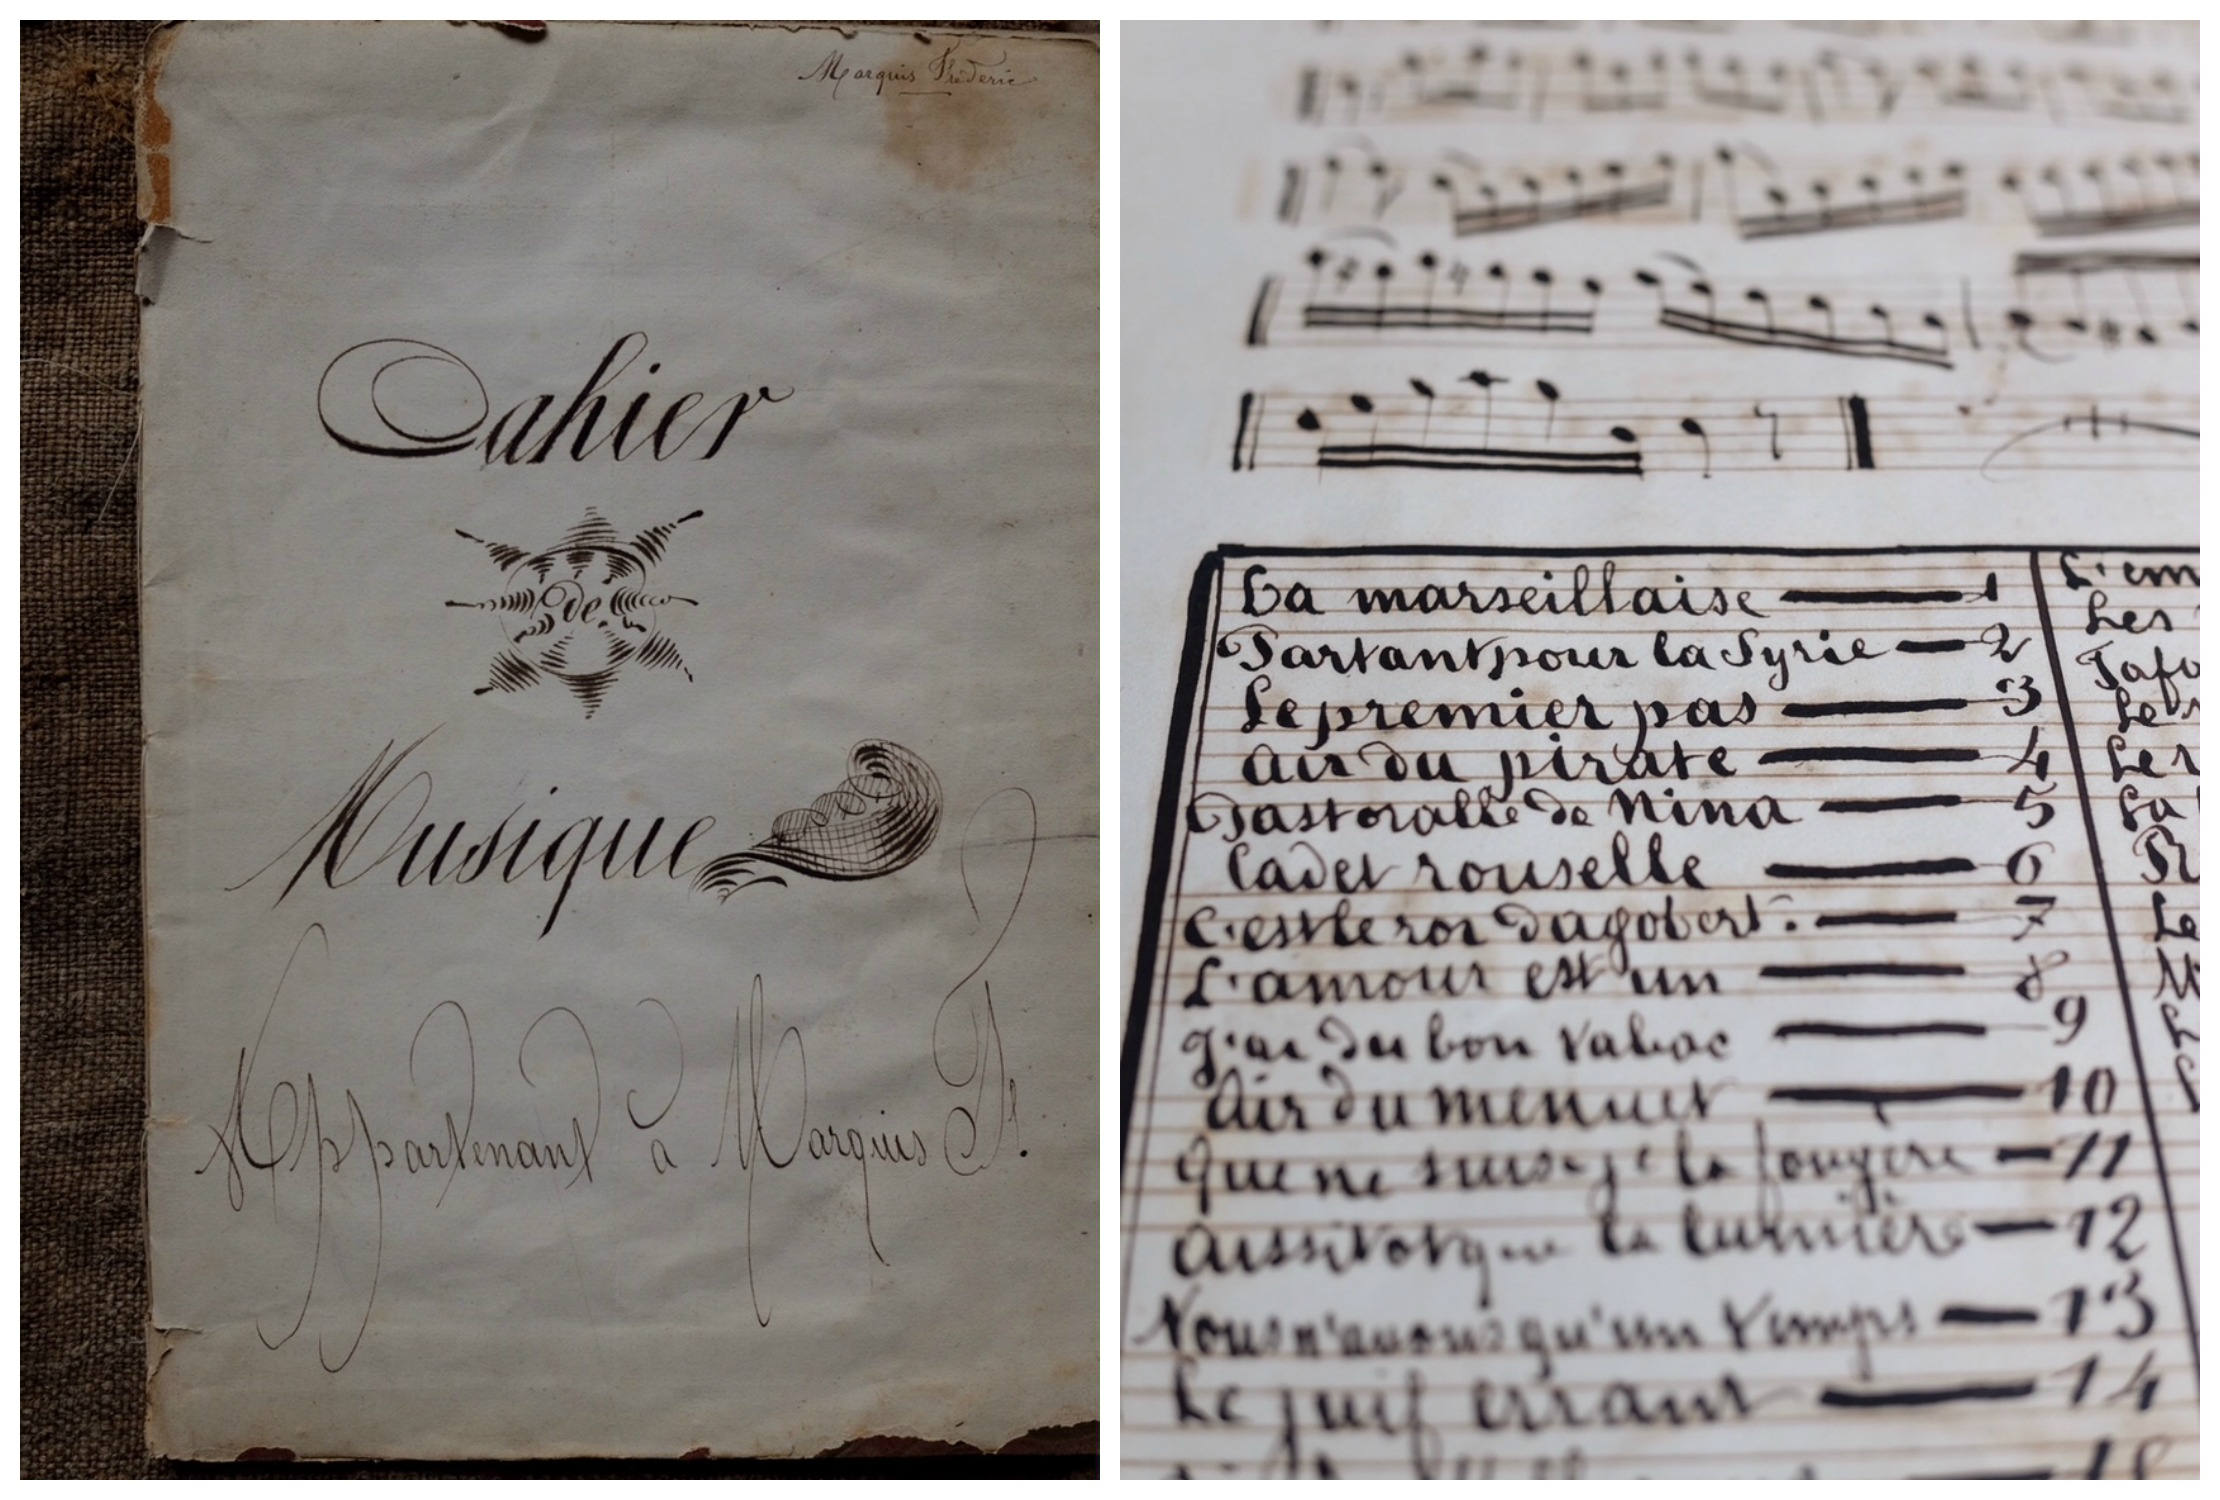 Marquis Frédéric
Cahier
de
Musique
Appartenant à Marquis Fc.
La marseillaise — 1
Partant pour la Syrie — 2
Le premier pas — 3
Air du pirate — 4
Pastoralle de Nina — 5
Cadet rouselle — 6
C'est le roi dagobert. — 7
L'amour est un — 8
J'ai du bon tabac — 9
Air du menuet — 10
Que ne suis-je la fougère — 11
Aussitot que la lumière — 12
Nous n'avons qu'un temps — 13
Le juif errant — 14
L'em
Les
Le
La
Le